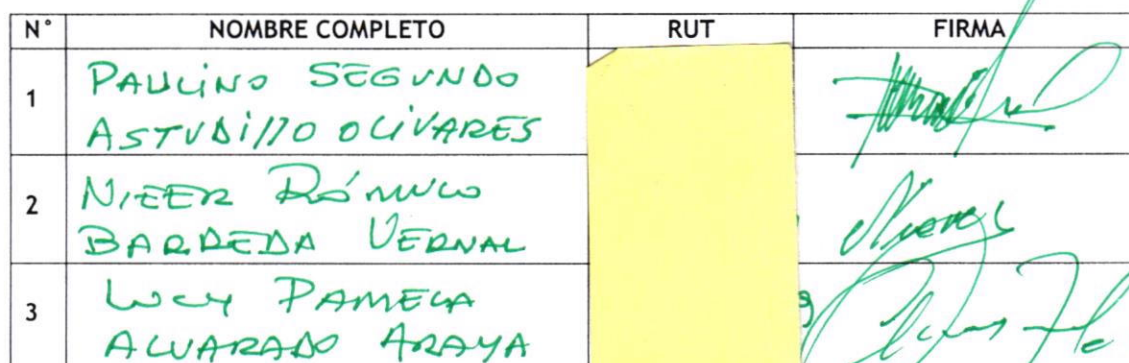 N° NOMBRE COMPLETO RUT FIRMA
1 PAULINO SEGUNDO
ASTUDILLO OLIVARES
2 NIEER RÓMULO
BARREDA VERNAL
3 LUCY PAMELA
ALVARADO ARAYA